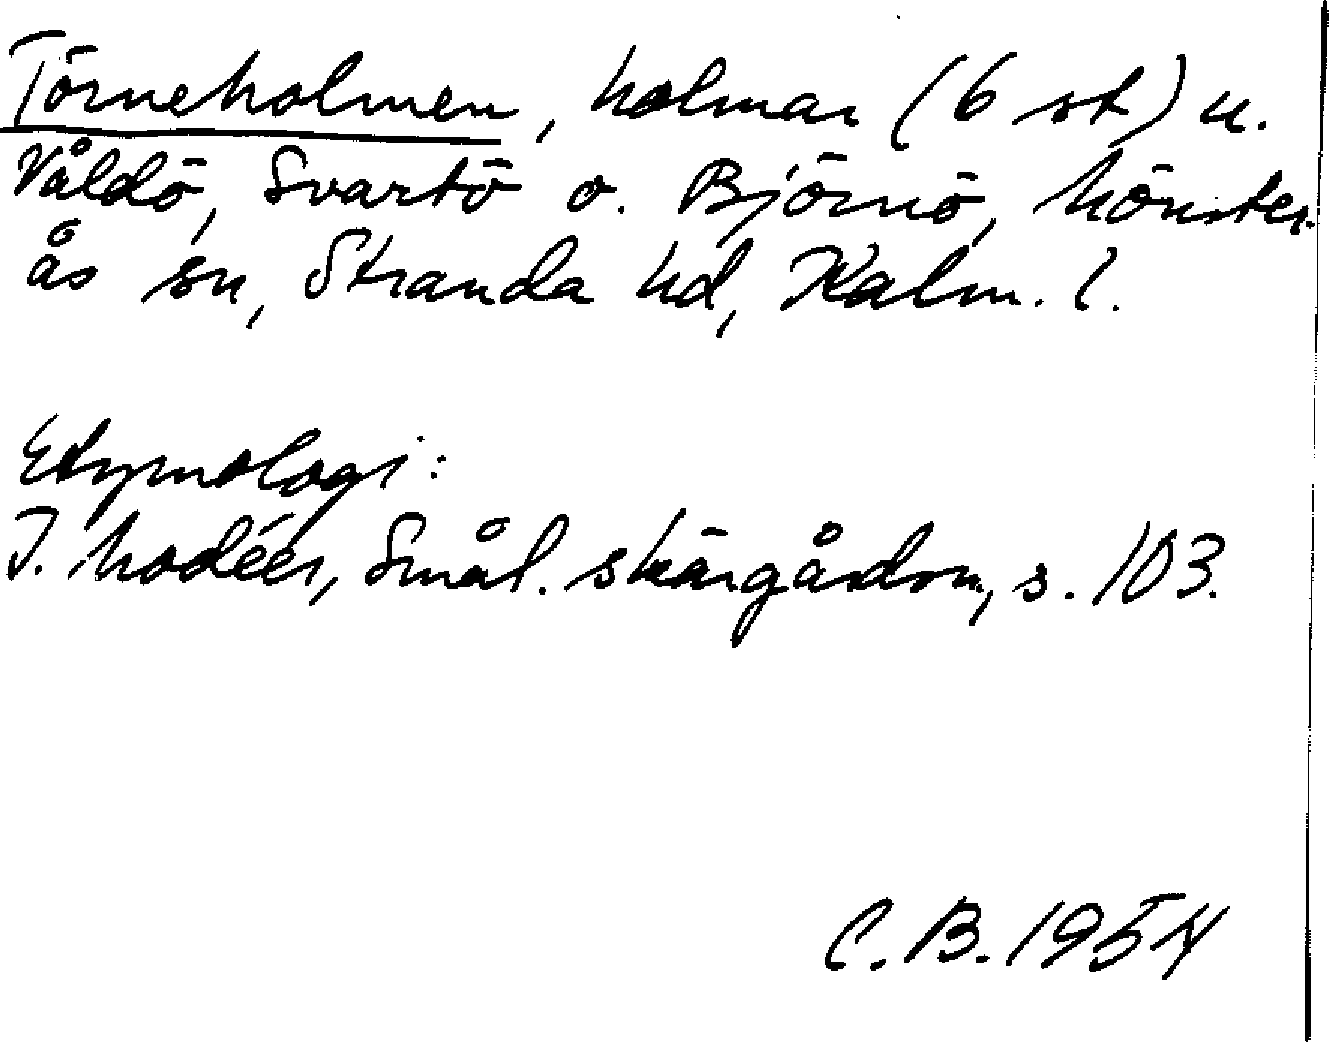 Törneholmen, holmar (6 st) u.
Våldö, Svartö o. Björnö, Mönster-
ås sn, Stranda hd, Kalm. l.
Etymologi:
I. Modéer, Smål. skärgårdsn, s. 103.
C.B. 1954